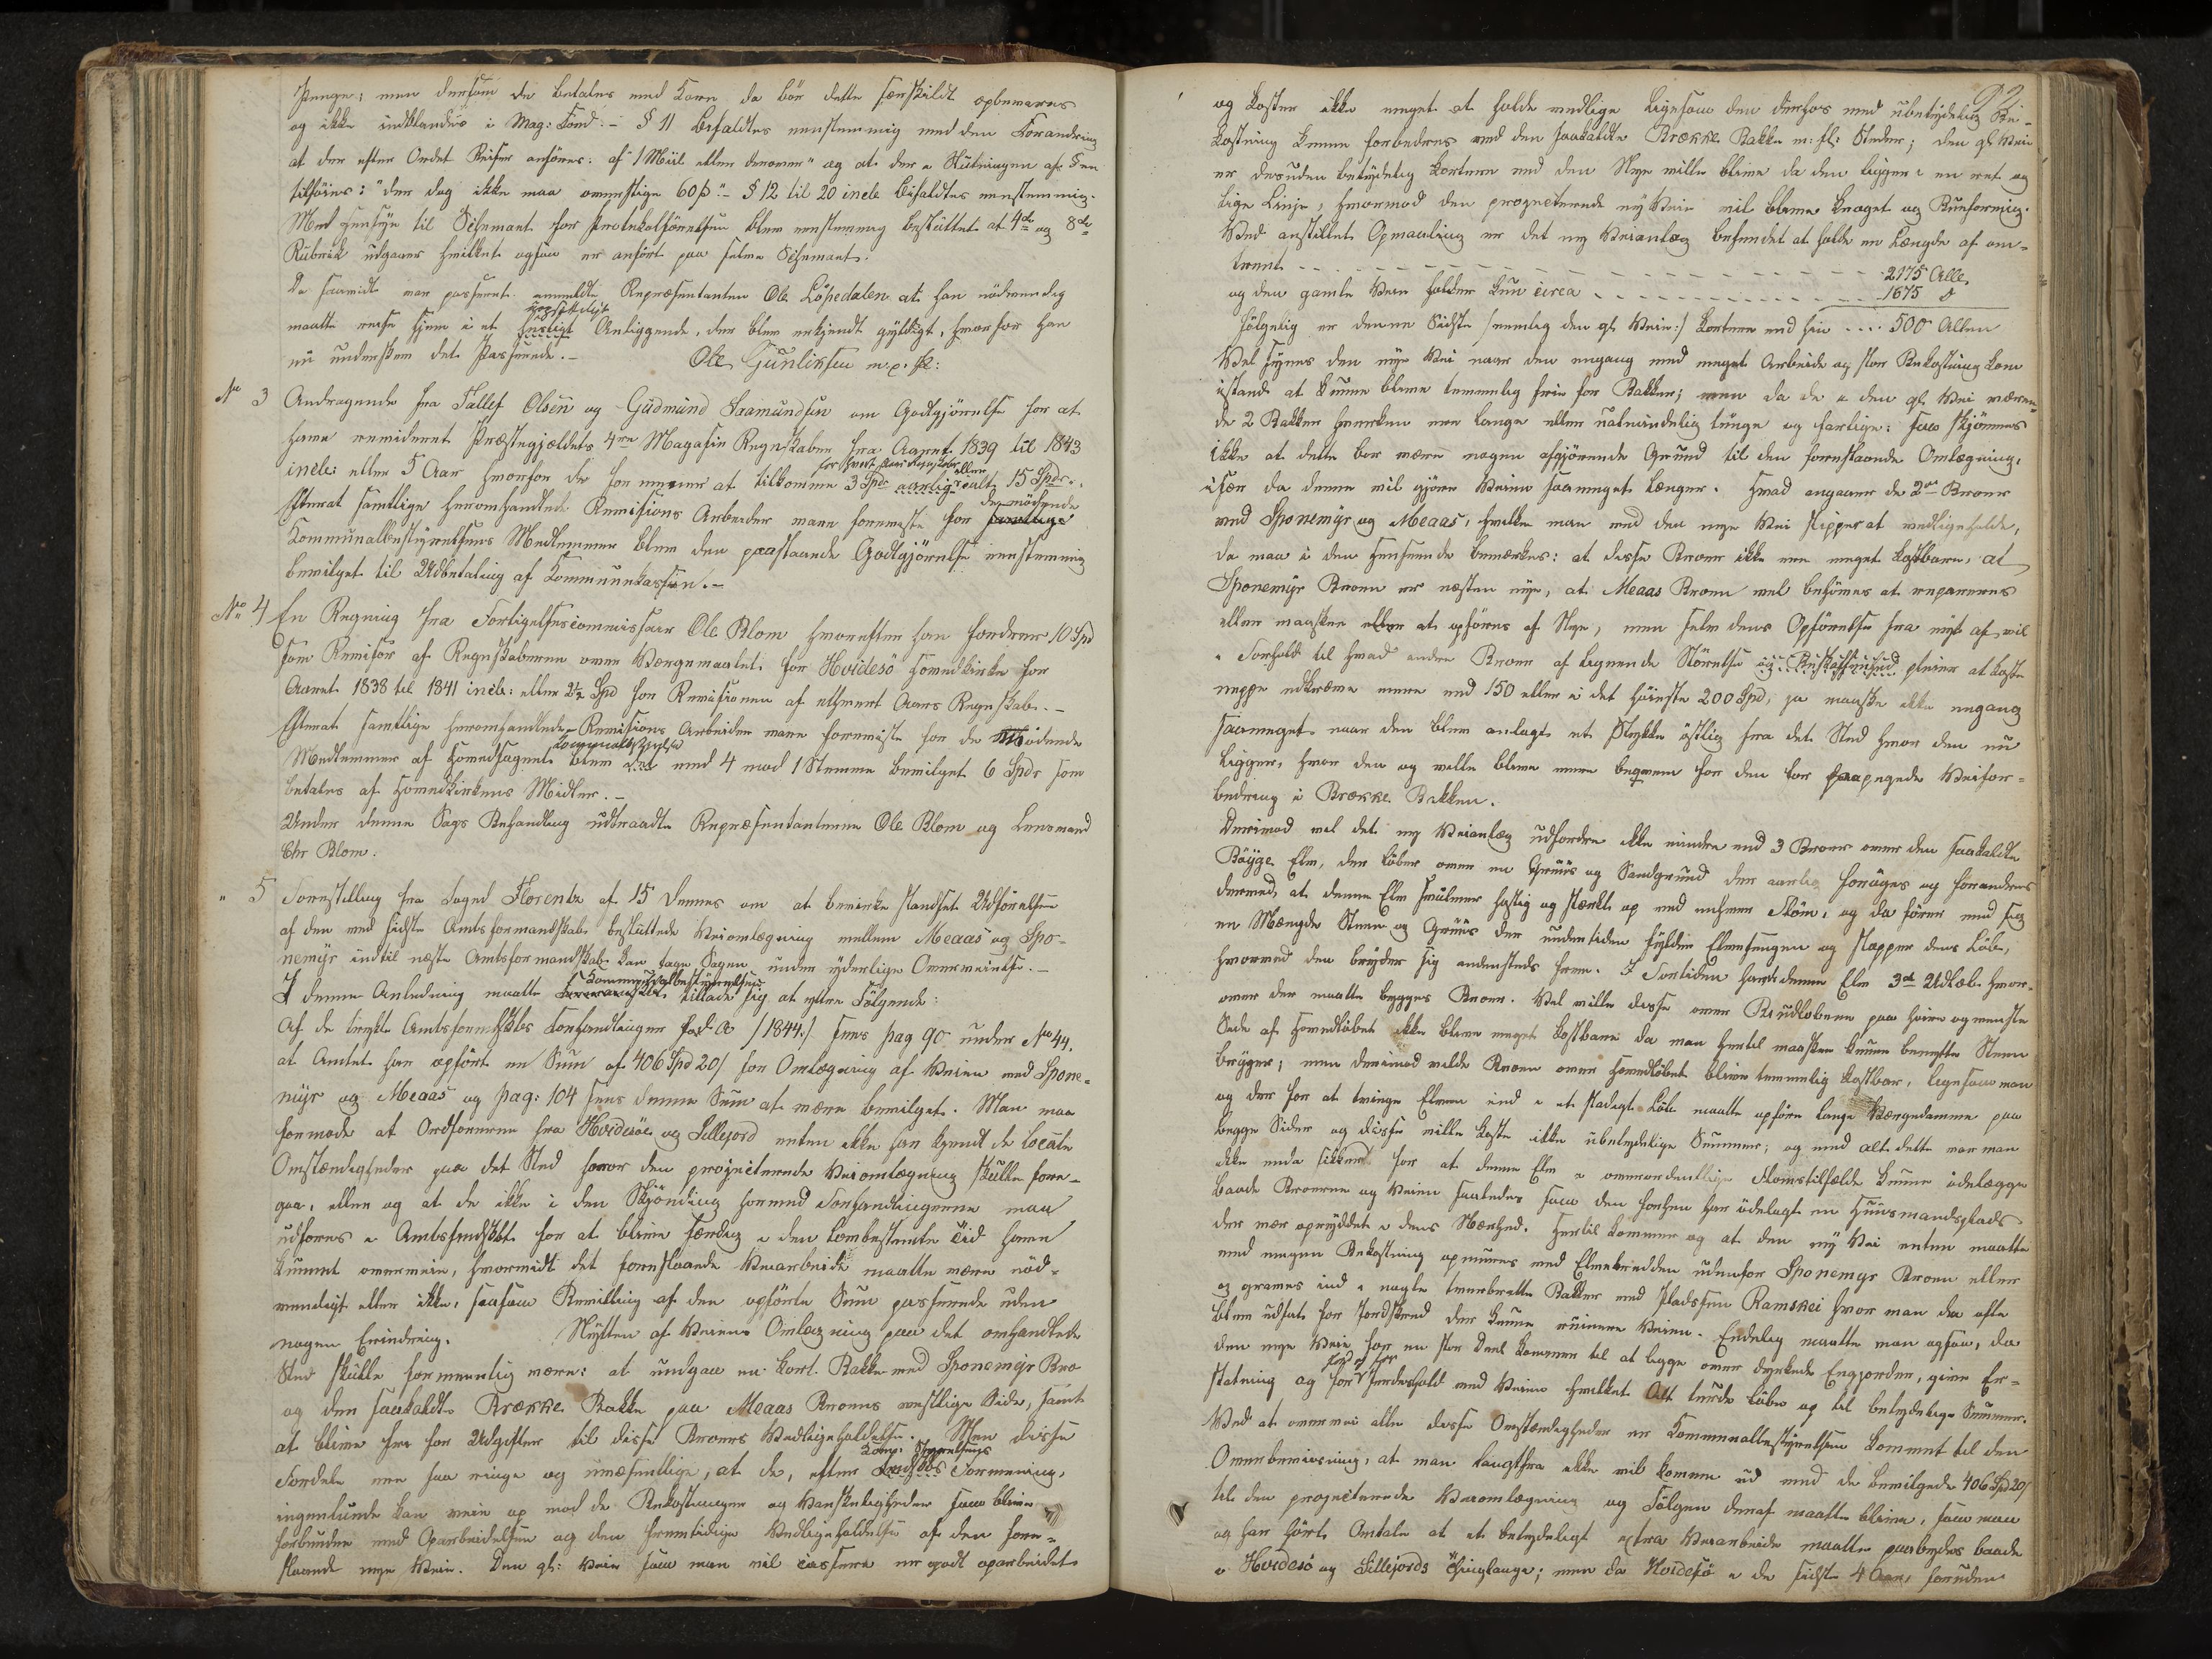 Penge; men dersom de betales med Korn da bör dette særskildt opbevares
og ikke indblandes i Mag: Fond. – § 11 bifaldtes eenstemmig med den Forandring
at der efter Ordet Reiser anföres: af "1 Miil eller derover" og at der i Slutningen af §en
tilföies: "der dog ikke maa overstige 60 β" – § 12 til 20 incl: bifaldtes eenstemmig.
Med Hensyn til Schemaet for Protokolförelsen blev eenstemmig besluttet at 4de og 8de
Rubrik udgaaer hvilket ogsaa er anfört paa selve Schemaet.
Da saavidt var passeret anmeldte Repræsentanten Ole Löpedalen at han nödvendig
maatte reise hjem i et Anliggende, der blev erkjendt gyldigt, hvorfor han
nu underskrev det Passerede. – Ole Gunliksen m. p. P:
No 3 Andragende fra Tallef Olsen og Gudmund Saamundsen om Godtgjörelse for at
have revideret Præstegjældets 4re Magasin Regnskaber fra Aaret 1839 til 1843
incl: eller 5 Aar hvorfor de formener at tilkomme 3 Spd aarlig eller ialt 15 Spdr.
for hvert Aars Regnskab
Efterat samtlige heromhandlede Revisions Arbeider vare foreviste for samtlige de mödende
Kommunalbestyrelsens Medlemmer blev den paastaaede Godtgjörelse eenstemmig
bevilget til Udbetaling af Kommunekassen. –
No 4 En Regning fra Forligelsescommissair Ole Blom hvorefter han fordrer 10 Spd
som Revisor af Regnskaberne over Værgemaalet for Hvidesö Hovedkirke for
Aaret 1838 til 1841 incl: eller 2½ Spd for Revisionen af ethvert Aars Regnskab. –
Efterat samtlige heromhandlede Revisions Arbeider vare foreviste for de Mödende
Medlemmer af Hovedsognets blev det med 4 mod 1 Stemme bevilget 6 Spdr som
betales af Hovedkirkens Midler. –
Under denne Sags Behandling udtraadte Repræsentanterne Ole Blom og Lensmand
Chr Blom.
" 5 Forestilling fra Foged Florentz af 15 dennes om at bevirke standset Udförelsen
af den ved sidste Amtsformandskab besluttede Veiomlægning mellem Meaas og Spo-
nemyr indtil næste Amtsformandskab kan tage Sagen under yderligere Overveielse. –
I denne Anledning maatte Formandskabet Kommunalbestyrelsen tillade sig at yttre Fölgende:
Af de trykte Amtsformdskbs Forhandlinger /1844:/ sees pag 90 under No 44,
at Amtet har opfört en Sum af 406 Spd 20 / for Omlægning af Veien ved Spone-
myr og Meaas og pag: 104 sees denne Sum at være bevilget. Man maa
formode at Ordförerne fra Hvidesöe og Sillejord enten ikke har kjendt de locale
Omstændigheder paa det Sted hvor den projecterede Veiomlægning skulle fore-
gaa, eller og at de ikke i den Skynding hvormed Forhandlingerne maa
udföres i Amtsfmdskbt for at blive færdig i den lovbestemte Tid have
kunnet overveie, hvorvidt det forestaaende Veiarbeide maatte være nöd-
vendigt eller ikke, saasom Bevilling af den opförte Sum passerede uden
nogen Erindring. Nytten af Veiens Omlægning paa det omhandlede
Sted skulle formeentlig være: at undgaae en kort Bakke ved Sponemyr Bro
og den saakaldte Brække Bakke paa Meaas Broens vestlige Side, samt
at blive frie for Udgifter til disse Broers Vedligeholdelse. Men disse
Fordele ere saa ringe og uvæsentlige, at de, efter Fmdskbs Kom: Bestyrelsens Formening,
ingenlunde kan veie op mod de Bekostninger og Vanskeligheder som blive
forbunden med Oparbeidelsen og den fremtidige Vedligeholdelse af den fore-
slaaede nye Vei. Den gl: Veie som man vil cassere er godt oparbeidet
og koster ikke meget at holde vedlige ligesom den derhos med ubetydelig Be-
kostning kunne forbedres ved den saakaldte Brække Bakke m: fl: Steder; den gl Vei
er desuden betydelig kortere end den Nye ville blive da den ligger i en ret og
lige Linje, hvormod den projecterede ny Veie vil blive kroget og
Ved anstillet Opmaaling er det ny Veianlæg befundet at holde en Længde af om-
trent - - - - - - - - - - - - 2175 Alle
og den gamle Veie holder kun circa - - - - - - - - - - 1675
fölgelig er denne Sidste /nemlig den gl Veie:/ kortere end hiin .... 500 Allen
Vel synes den nye Vei naar den engang med meget Arbeide og stor Bekostning kom
istand at kunne blive temmelig frie for Bakker; men da de i den gl Vei væren-
de 2 Bakker hverken ere lange eller ualmindelig tunge og farlige: saa skjönnes
ikke at dette bör være nogen afgjörende Grund til den forestaaende Omlægning,
især da denne vil gjöre Veien saameget længer. Hvad angaaer de 2de Broer
ved Sponemyr og Meaas, hvilke man med den nye Vei slipper at vedligeholde,
da maa i den Henseende bemærkes: at disse Broer ikke ere meget kostbare, at
Sponemyr Broen er næsten nye, at Meaas Broen vel behöves at repareres
eller maaskee eller at opföres af Nye, men selv dens Opförelse fra nyt af vil
i Forhold til hvad andre Broer af lignende Störrelse og Beskaffenhed pleier at koste
neppe udkræve mere end 150 eller i det höieste 200 Spd, ja maaske ikke engang
saameget naar den blev anlagt et Stykke östlig fra det Sted hvor den nu
ligger, hvor den og ville blive mere beqvem for den for paapegede Veifor-
bedring i Brække Bakken.
Derimod vil det ny Veianlæg udfordre ikke mindre end 3 Broer over den saakaldte
Böyge Elv, der löber over en Gruus og Sandgrund der aarlig foröges og forandres
derved, at denne Elv svulmer hastig og stærkt op ved enhver Flöm, og da förer med sig
en Mængde Steen og Gruus der undertiden fylder Elvesengen og stopper dens Löb,
hvorved den bryder sig andensteds frem. I Fortiden har denne Elv 3de Udlöb hvor-
over der maatte bygges Broer. Vel ville disse over Biudlöbene paa höire og venstre
Side af Hovedlöbet ikke blive meget kostbare da man hertil maaskee kunne benytte Steen
brygger; men derimod vilde Broen over Hovedlöbet blive temmelig kostbar, ligesom man
og der for at tvinge Elven ind i et stadigt Löb maatte opföre lange Værgedamme paa
begge Sider og disse ville koste ikke ubetydelige Summer; og med alt dette var man
ikke enda sikkret for at denne Elv i overordentlige Flomstilfælde kunne ödelægge
baade Broerne og Veien saaledes som den forhen har ödelagt en Huusmandsplads
der var opryddet i dens Nærhed. Hertil kommer og at den ny Vei enten maatte
med megen Bekostning opmures ved Elvebredden udenfor Sponemyr Broen eller
og graves ind i nogle tverbratte Bakker ved Pladsen Ramskei hvor man da ofte
blev udsat for Jordskred der kunne ruinere Veien. Endelig maatte man ogsaa, da
den nye Veie for en stor Deel kommer til at ligge over dyrkede Engjorder, give Er-
statning og for Gjerdeshold ved Veien hvilket Alt turde löbe op til betydelige Summer.
Ved at overveie alle disse Omstændigheder er Kommunalbestyrelsen kommet til den
Overbeviisning, at man langtfra ikke vil komme ud med de bevilgede 406 Spd 20 /
til den projecterede Veiomlægning og Fölgen deraf maatte blive, som man
og har hört Omtale at et betydeligt extra Veiarbeide maatte paabydes baade
i Hvidesö og Sillejords Thinglauge; men da Hvidesö i de sidste 4 Aar, foruden